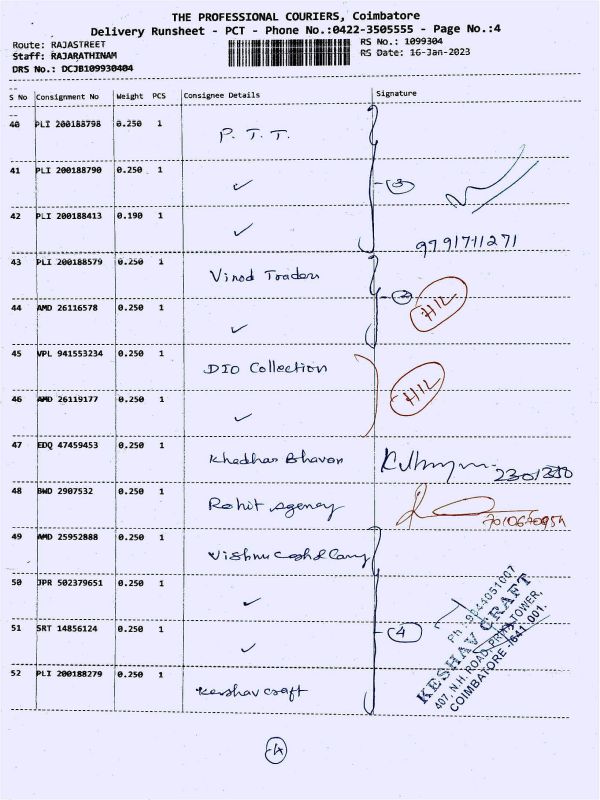 THE PROFESSIONAL COURIERS, Coimbatore
Delivery Runsheet - PCT - Phone No.:0422-3505555 - Page No.:4
Route: RAJASTREET
RS No.: 1099304
Staff: RAJARATHINAM
RS Date: 16-Jan-2023
DRS No.: DCJB109930404
S No Consignment No Weight PCS Consignee Details Signature
40 PLI 200188798 0.250 1 P. T. T.
41 PLI 200188790 0.250 1 ✓ 3
42 PLI 200188413 0.190 1 ✓
9791711271
43 PLI 200188579 0.250 1 Vinod Traders
44 AMD 26116578 0.250 1 ✓ 2 H12
45 VPL 941553234 0.250 1 DIO Collection
46 AMD 26119177 0.250 1 ✓ H12
47 EDQ 47459453 0.250 1 Khadhar Bhavan
48 BWD 2907532 0.250 1 Rohit agency
49 AMD 25952888 0.250 1 Vishnu
50 JPR 502379651 0.250 1 ✓
51 SRT 14856124 0.250 1 ✓ 4
52 PLI 200188279 0.250 1 Keshav craft
Ph.: 9944051007
KESHAV CRAFT
407, N.H. ROAD, PRIYA TOWER,
COIMBATORE - 641 001.
4